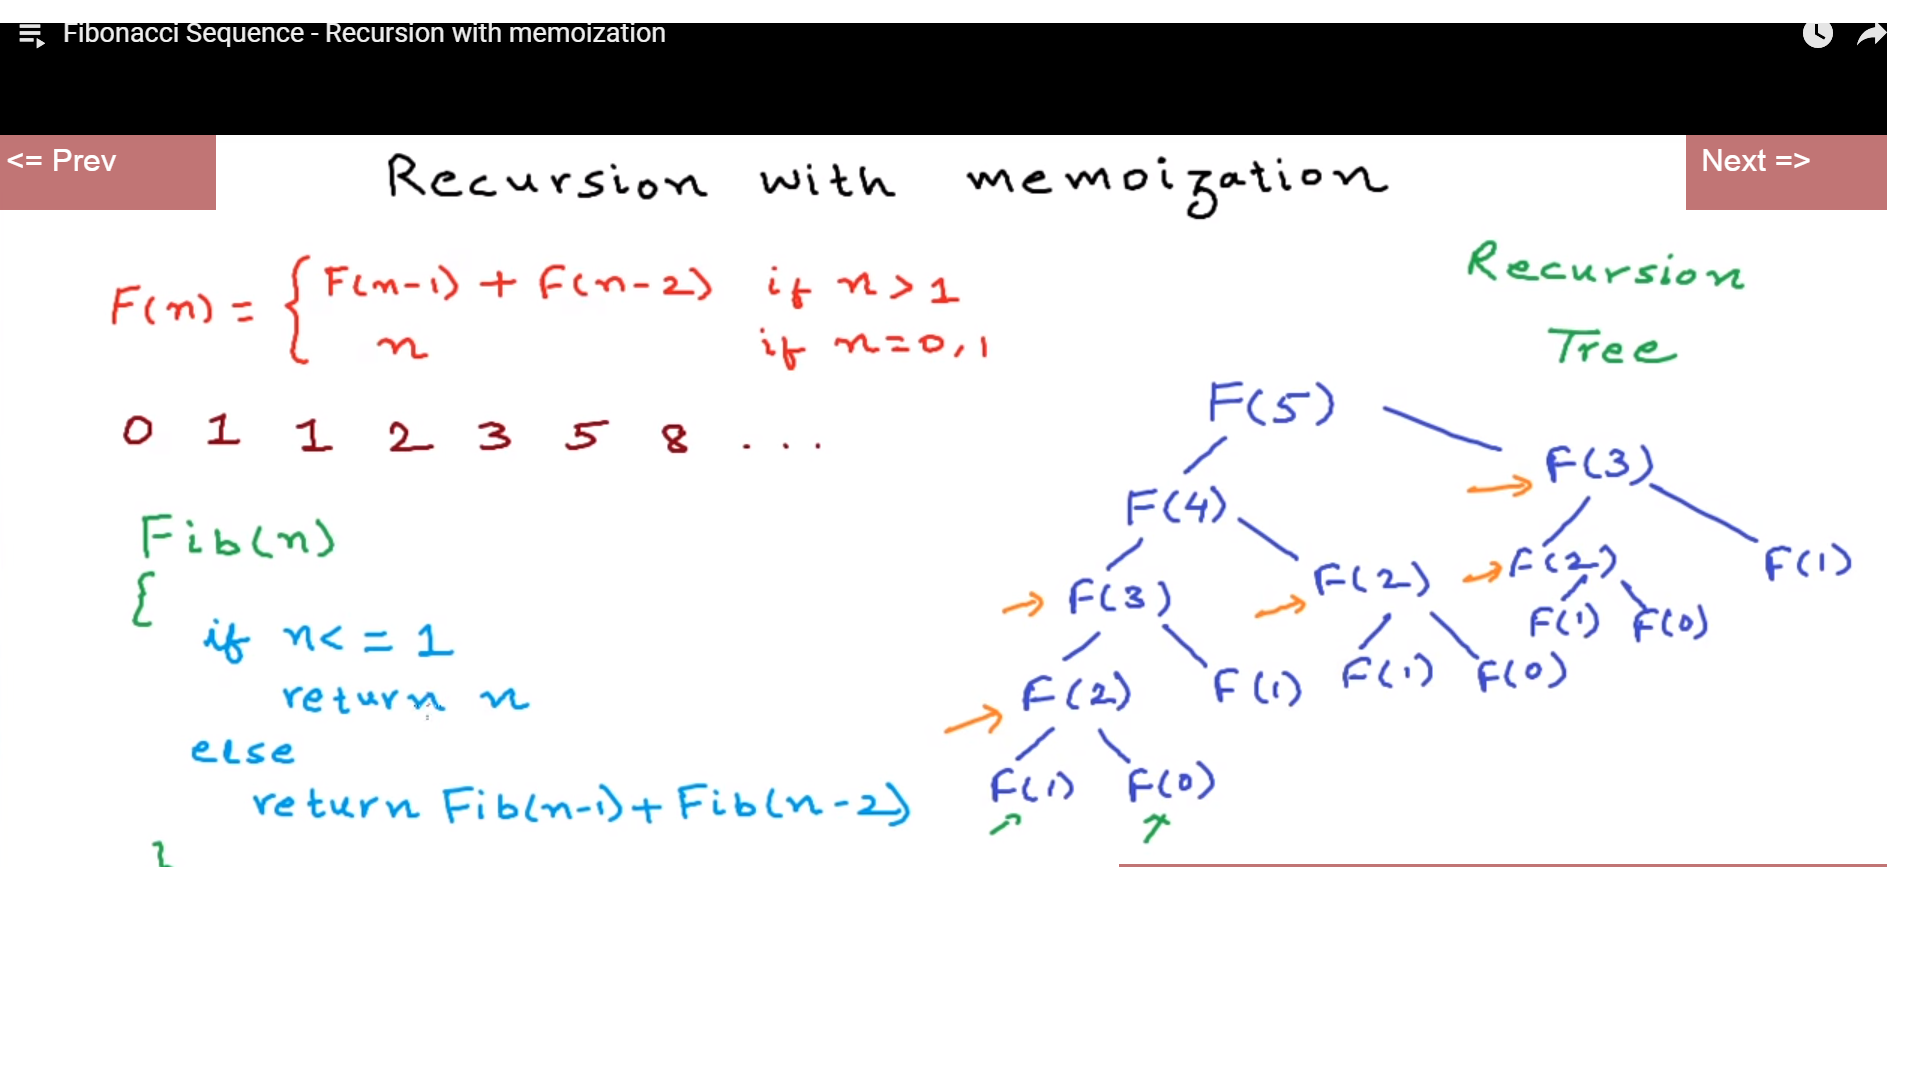 Fibonacci Sequence - Recursion with memoization
<= Prev
Next =>
Recursion with memoization
Recursion
Tree
F(n) = { F(n-1) + F(n-2) if n > 1
n if n=0,1
0 1 1 2 3 5 8 ...
Fib(n)
{
if n< = 1
return n
else
return Fib(n-1)+Fib(n-2)
}
F(5)
F(4) F(3)
F(3) F(2) F(2) F(1)
F(2) F(1) F(1) F(0) F(1) F(0)
F(1) F(0)